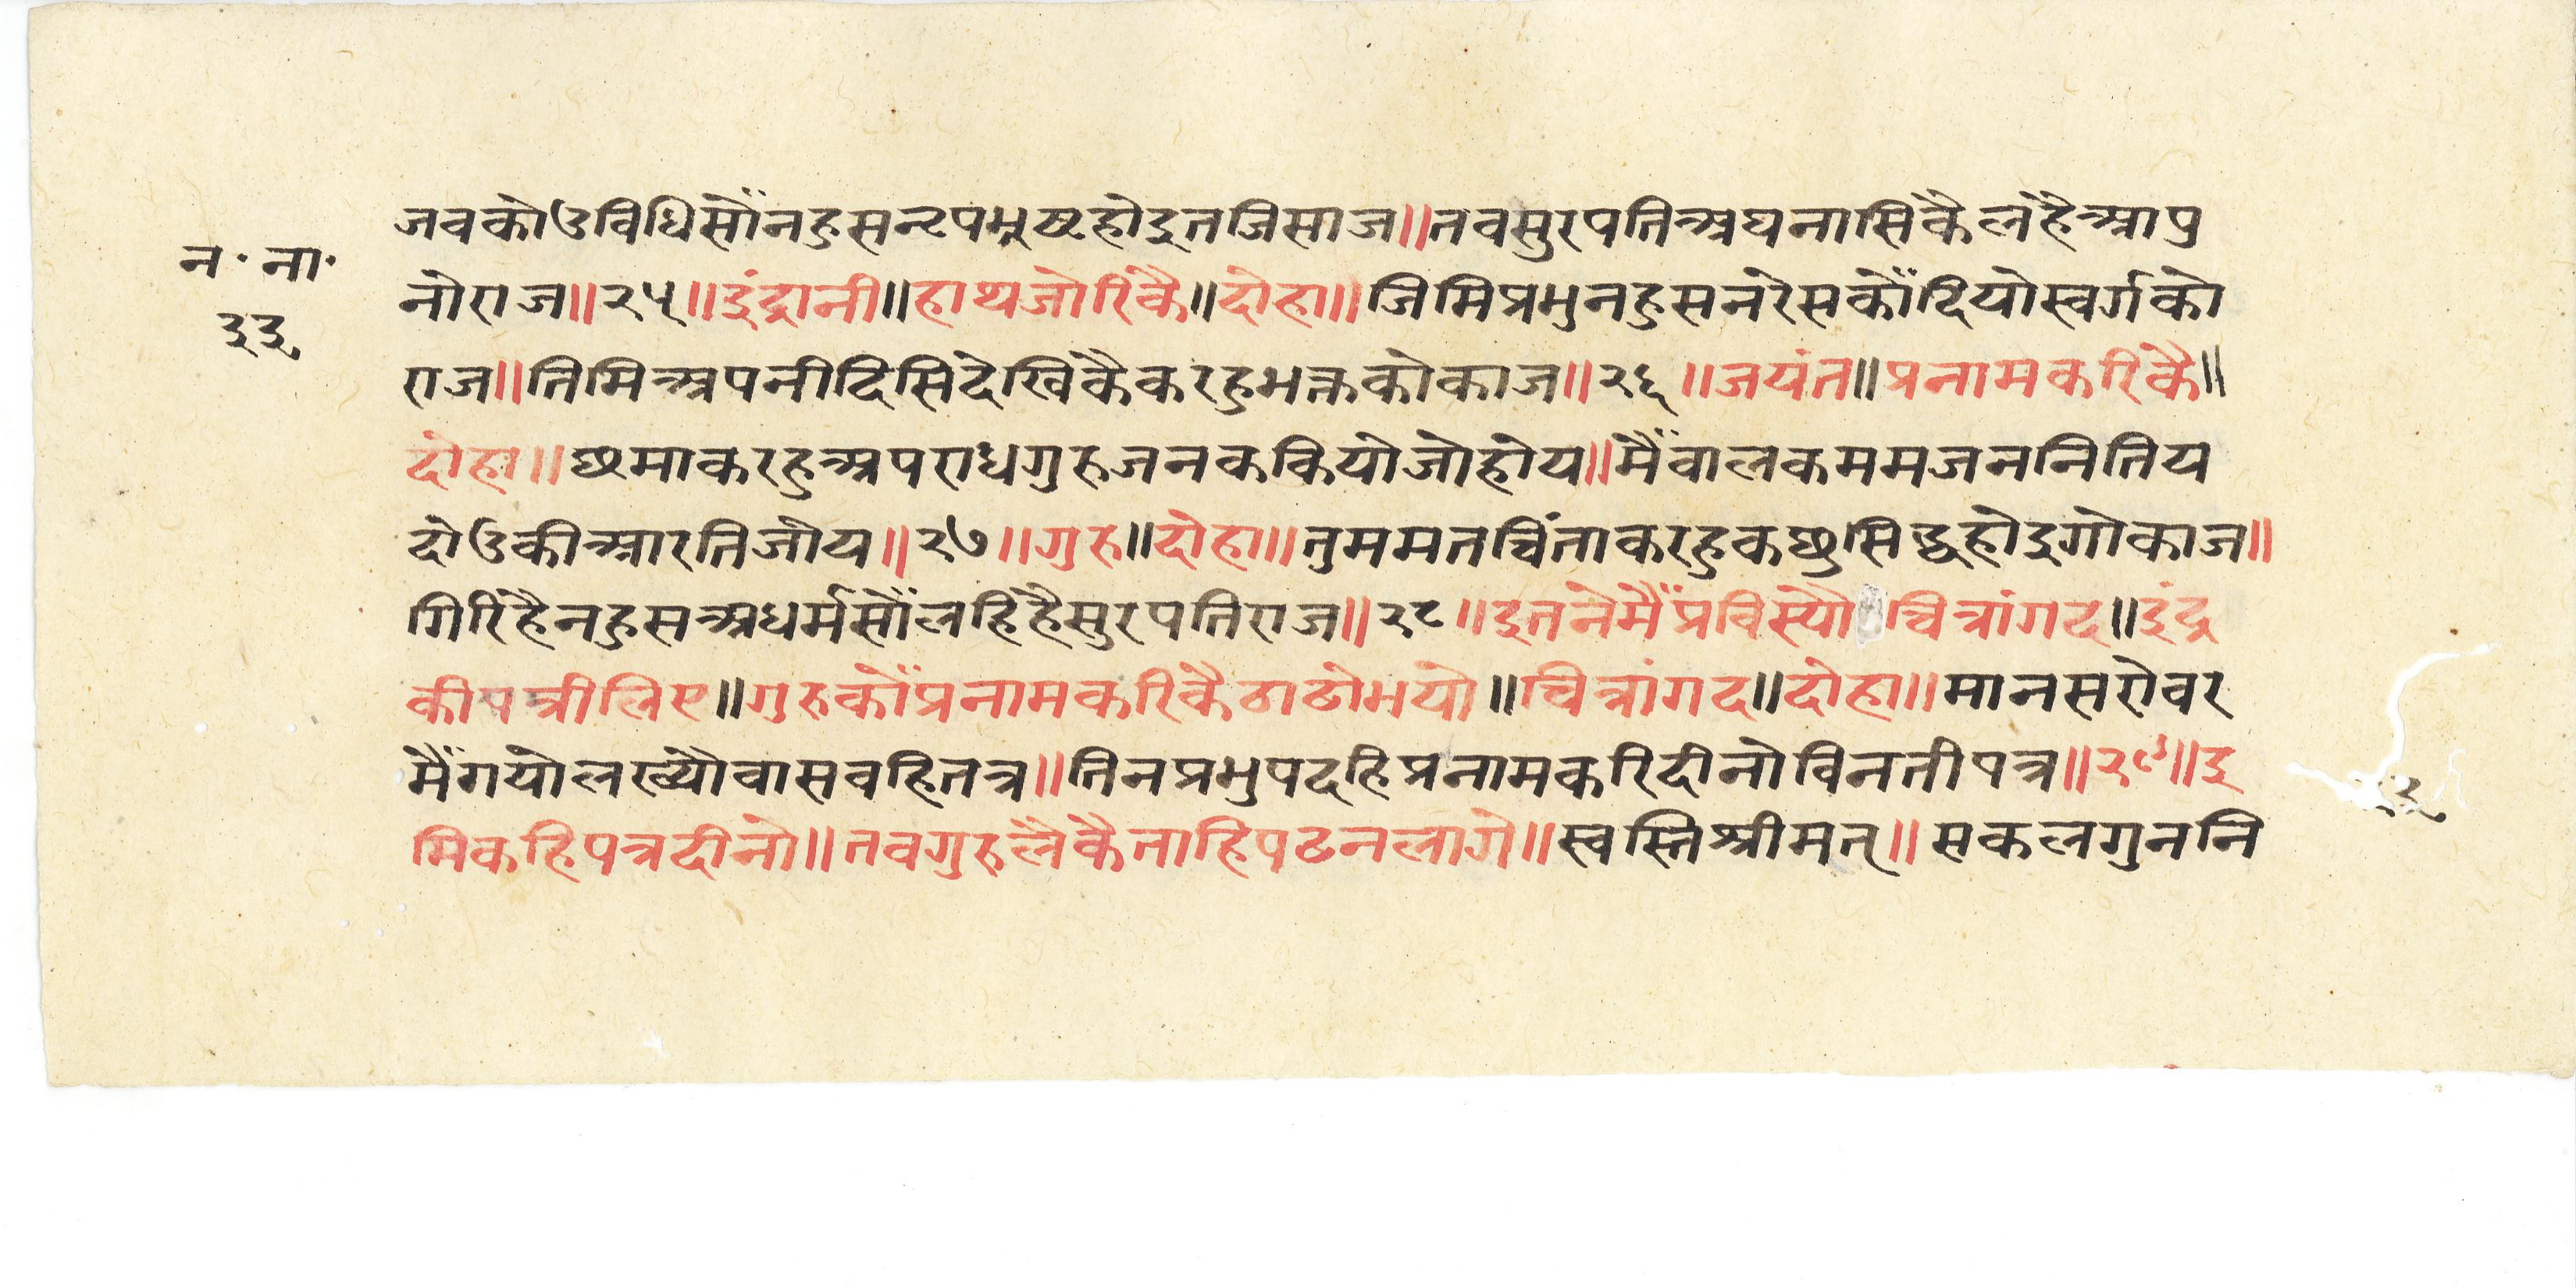 जवकोउविधिसौंनहुसनृपभ्रष्टहोइतजिसाज॥तवसुरपतिअघनासिकैलहैआपु
न॰ ना॰
नोराज॥२५॥इंद्रानी॥हाथजोरिकै॥दोहा॥जिमिप्रभुनहुसनरेसकौंदियोस्वर्गको
३३
राज॥तिमिअपनीदिसिदेखिकैकरहुभक्तकोकाज॥२६॥जयंत॥प्रनामकरिकै॥
दोहा॥छमाकरहुअपराधगुरुजनककियोजोहोय॥मैंवालकममजननितिय
दोउकीआरतिजोय॥२७॥गुरु॥दोहा॥तुममतचिंताकरहुकछुसिद्धहोइगोकाज॥
गिरिहैनहुसअधर्मसौंलहिहैसुरपतिराज॥२८॥इतनेमैंप्रविस्यौ चित्रांगद॥इंद्र
कीपत्रीलिए॥गुरुकौंप्रनामकरिकैठाढोभयो॥चित्रांगद॥दोहा॥मानसरोवर
मैंगयोलख्यौवासवहितत्र॥तिनप्रभुपदहिप्रनामकरिदीनोविनतीपत्र॥२९॥इ
मिकहिपत्रदीनो॥तवगुरुलैकैताहिपढनलागे॥स्वस्तिश्रीमत्॥सकलगुननि